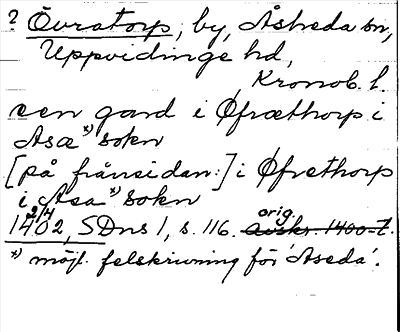 ? Övratorp, by, Åsheda sn,
Uppvidinge hd,
Kronob. l.
een gard i Øfræthorp i
Asæ *) sokn
[på frånsidan:] i Øfrethorp
i Asa *) sokn
1402 2/4, SDns 1, s. 116. orig. avskr. 1400-t.
*) möjl. felskrivning för 'Aseda'.